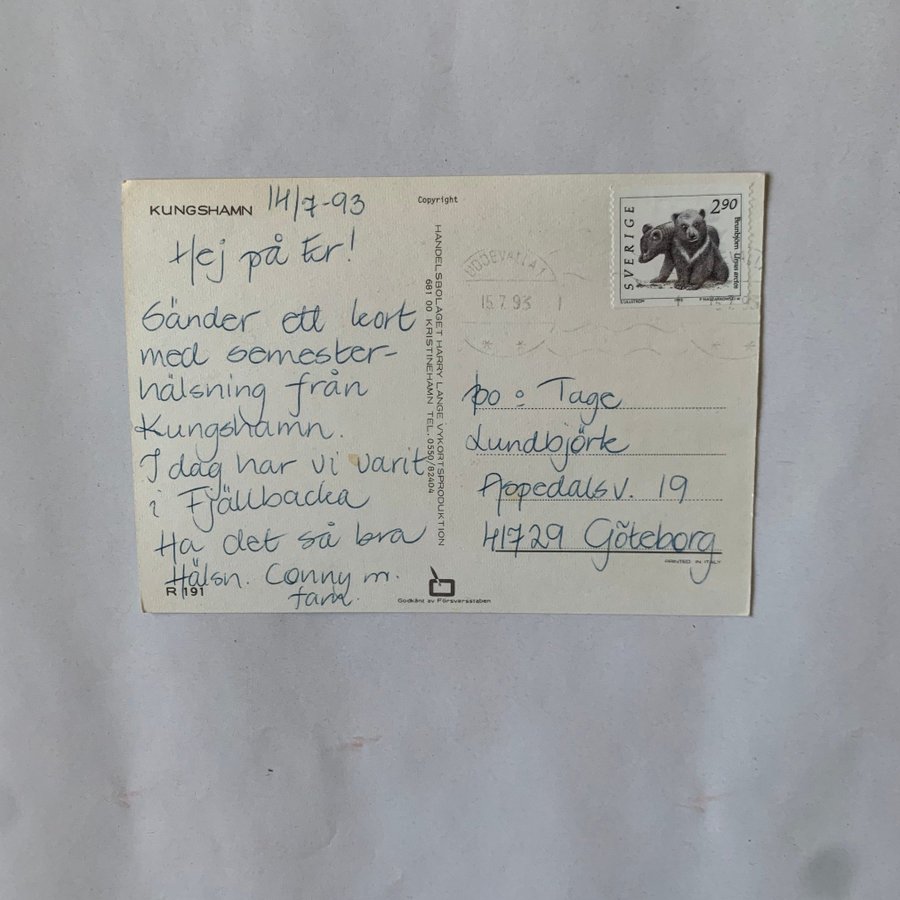 KUNGSHAMN
14/7-93
Hej på Er!
Sänder ett kort
med semester-
hälsning från
Kungshamn.
I dag har vi varit
i Fjällbacka
Ha det så bra
Hälsn. Conny m.
fam.
R 191
Copyright
HANDELSBOLAGET HARRY LANGE VYKORTSPRODUKTION
681 00 KRISTINEHAMN TEL. 0550/82404
Godkänt av Försvarsstaben
UDDEVALLA 1
15.7.93
SVERIGE
2 90
Brunbjörn Ursus arctos
Bo o Tage
Lundbjörk
Appedalsv. 19
41729 Göteborg
PRINTED IN ITALY